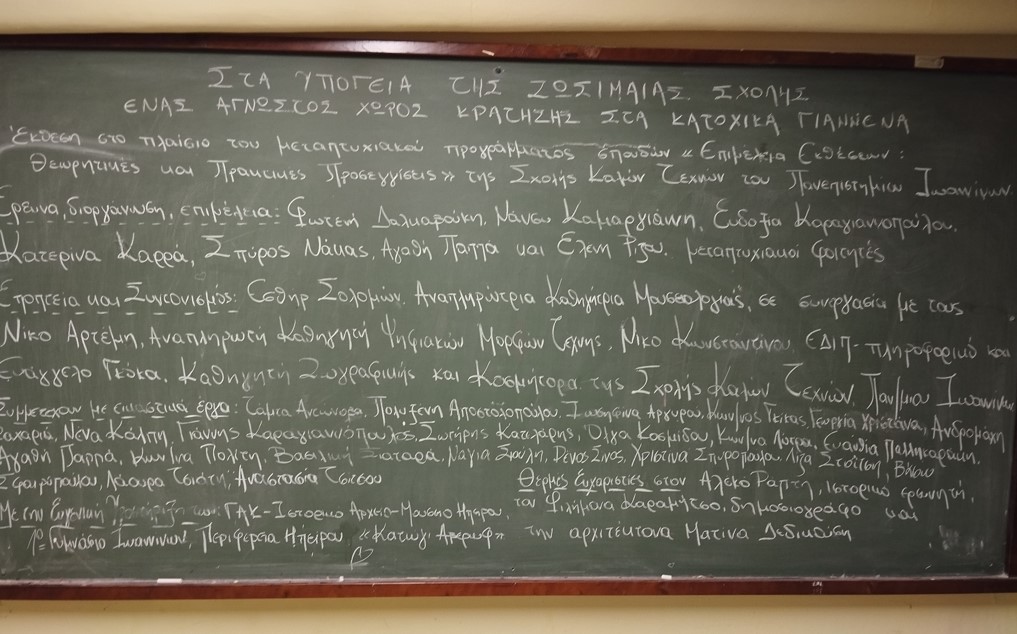 ΣΤΑ ΥΠΟΓΕΙΑ ΤΗΣ ΖΩΣΙΜΑΙΑΣ ΣΧΟΛΗΣ
ΕΝΑΣ ΑΓΝΩΣΤΟΣ ΧΩΡΟΣ ΚΡΑΤΗΣΗΣ ΣΤΑ ΚΑΤΟΧΙΚΑ ΓΙΑΝΝΕΝΑ
Έκθεση στο πλαίσιο του μεταπτυχιακού προγράμματος σπουδών « Επιμέλεια Εκθέσεων :
Θεωρητικές και Πρακτικές Προσεγγίσεις » της Σχολής Καλών Τεχνών του Πανεπιστημίου Ιωαννίνων.
Έρευνα, διοργάνωση, επιμέλεια : Φωτεινή Δαλμαβούκη, Νάνσυ Καμαργιάννη, Ευδοξία Καραγιαννοπούλου,
Κατερίνα Καρρά, Σπύρος Νάκας, Αγαθή Παππά και Ελένη Ρίζου, μεταπτυχιακοί φοιτητές
Εποπτεία και Συντονισμός : Εσθήρ Σολομών, Αναπληρώτρια Καθηγήτρια Μουσειολογίας, σε συνεργασία με τους
Νίκο Αρτέμη, Αναπληρωτή Καθηγητή Ψηφιακών Μορφών Τέχνης, Νίκο Κωνσταντίνου, ΕΔΙΠ - πληροφορικό και
Ευάγγελο Γκόκα, Καθηγητή Ζωγραφικής και Κοσμήτορα της Σχολής Καλών Τεχνών, Παν/μιο Ιωαννίνων
Συμμετέχουν με εικαστικά έργα : Πολυξένη Αποστολοπούλου, Αργυρού, Κων/νος Γκίκας, Γεωργία Χριστάνα, Ανδρομάχη
Νένα Κάλπη, Γιάννης Καραγιαννόπουλος, Σωτήρης Κατσάρης, Όλγα Κοσμίδου, Κων/να Λύτρα, Ευανθία Παλληκαράκη,
Αγαθή Παππά, Κων/να Πολίτη, Βασιλική Ντένος Σίνος, Χριστίνα Σπυροπούλου, Λίζα
Τσιάτη, Αναστασία Τσέτσου Θερμές Ευχαριστίες στον Αλέκο Ράπτη, Ιστορικό ερευνητή,
Με την Ευγενική των ΓΑΚ - Ιστορικό Αρχείο - Μουσείο Ηπείρου, τον Φιλήμονα Καραμήτσο, δημοσιογράφο και
1ο Γυμνάσιο Ιωαννίνων, Περιφέρεια Ηπείρου, « Κατώγι Αβέρωφ » την αρχιτέκτονα Ματίνα Δεδικούση